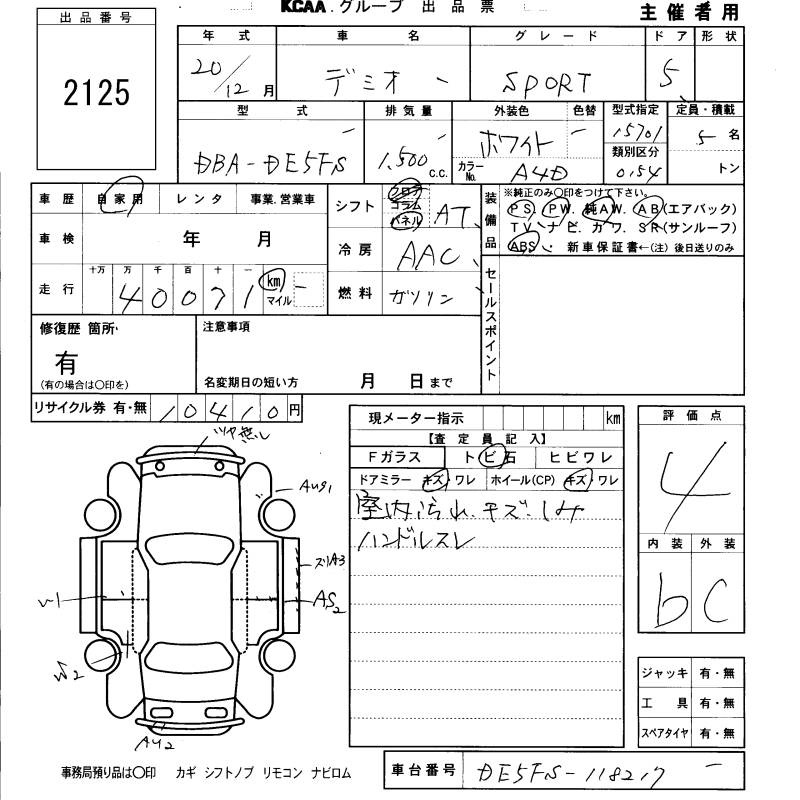 KCAA.グループ 出品票
主催者用
出品番号
2125
年式 車名 グレード ドア 形状
20/12月 デミオ ー SPORT 5
型式 排気量 外装色 色替 型式指定 定員・積載
DBA-DE5FS 1.500 c.c. ホワイト ー 15701 5名
カラーNo. A4D 類別区分 0154 トン
車歴 自家用 レンタ 事業.営業車
シフト フロア コラム パネル AT
装備品 ※純正のみ○印をつけて下さい。
PS. PW. 純AW. AB(エアバック)
TV. ナビ. カワ. SR(サンルーフ)
ABS. 新車保証書←(注) 後日送りのみ
車検 年 月
冷房 AAC
走行 十万 万 千 百 十 一
40071 km マイル ー
燃料 ガソリン
セールスポイント
修復歴 箇所
有
(有の場合は○印を)
注意事項
名変期日の短い方 月 日まで
リサイクル券 有・無 10410円
現メーター指示 km
【査定員記入】
Fガラス トビ石 ヒビワレ
ドアミラー キズ/ワレ ホイール(CP) キズ/ワレ
室内汚れ.キズ.しみ
ハンドルスレ
評価点
4
内装 外装
b C
ツヤ無し
AU91
ズリA3
AS2
AU2
ジャッキ 有・無
工具 有・無
スペアタイヤ 有・無
事務局預り品は○印 カギ シフトノブ リモコン ナビロム
車台番号 DE5FS-118217 ー